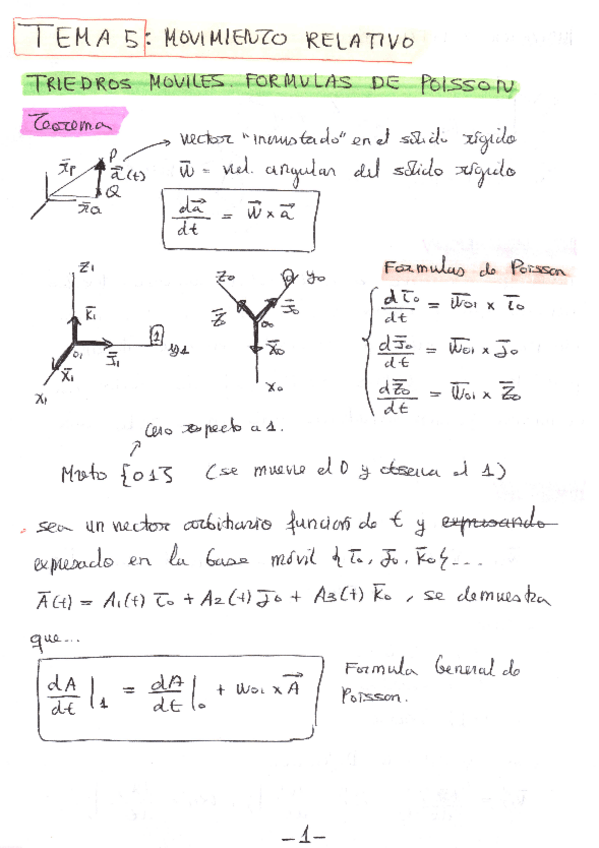 TEMA 5: MOVIMIENTO RELATIVO
TRIEDROS MOVILES. FORMULAS DE POISSON
Teorema
vector "incrustado" en el sólido rígido
x̄p P a⃗(t) Q x̄Q
w̄ = vel. angular del sólido rígido
da⃗/dt = w⃗ x a⃗
Z1 K̄1 O1 J̄1 1 y1 X̄1 X1
Z0 Z̄0 0 y0 J̄0 X̄0 X0
Formulas de Poisson
dī0/dt = w̄01 x ī0
dJ̄0/dt = w̄01 x J̄0
dZ̄0/dt = w̄01 x Z̄0
Cero respecto a 1.
Mvto {01} (se mueve el 0 y observa el 1)
sea un vector arbitrario función de t y expresando
expresado en la base móvil {ī0, J̄0, k̄0}...
Ā(t) = A1(t) ī0 + A2(t) J̄0 + A3(t) k̄0, se demuestra
que...
dA⃗/dt |1 = dA⃗/dt |0 + w01 x A⃗
Formula General de
Poisson.
-1-